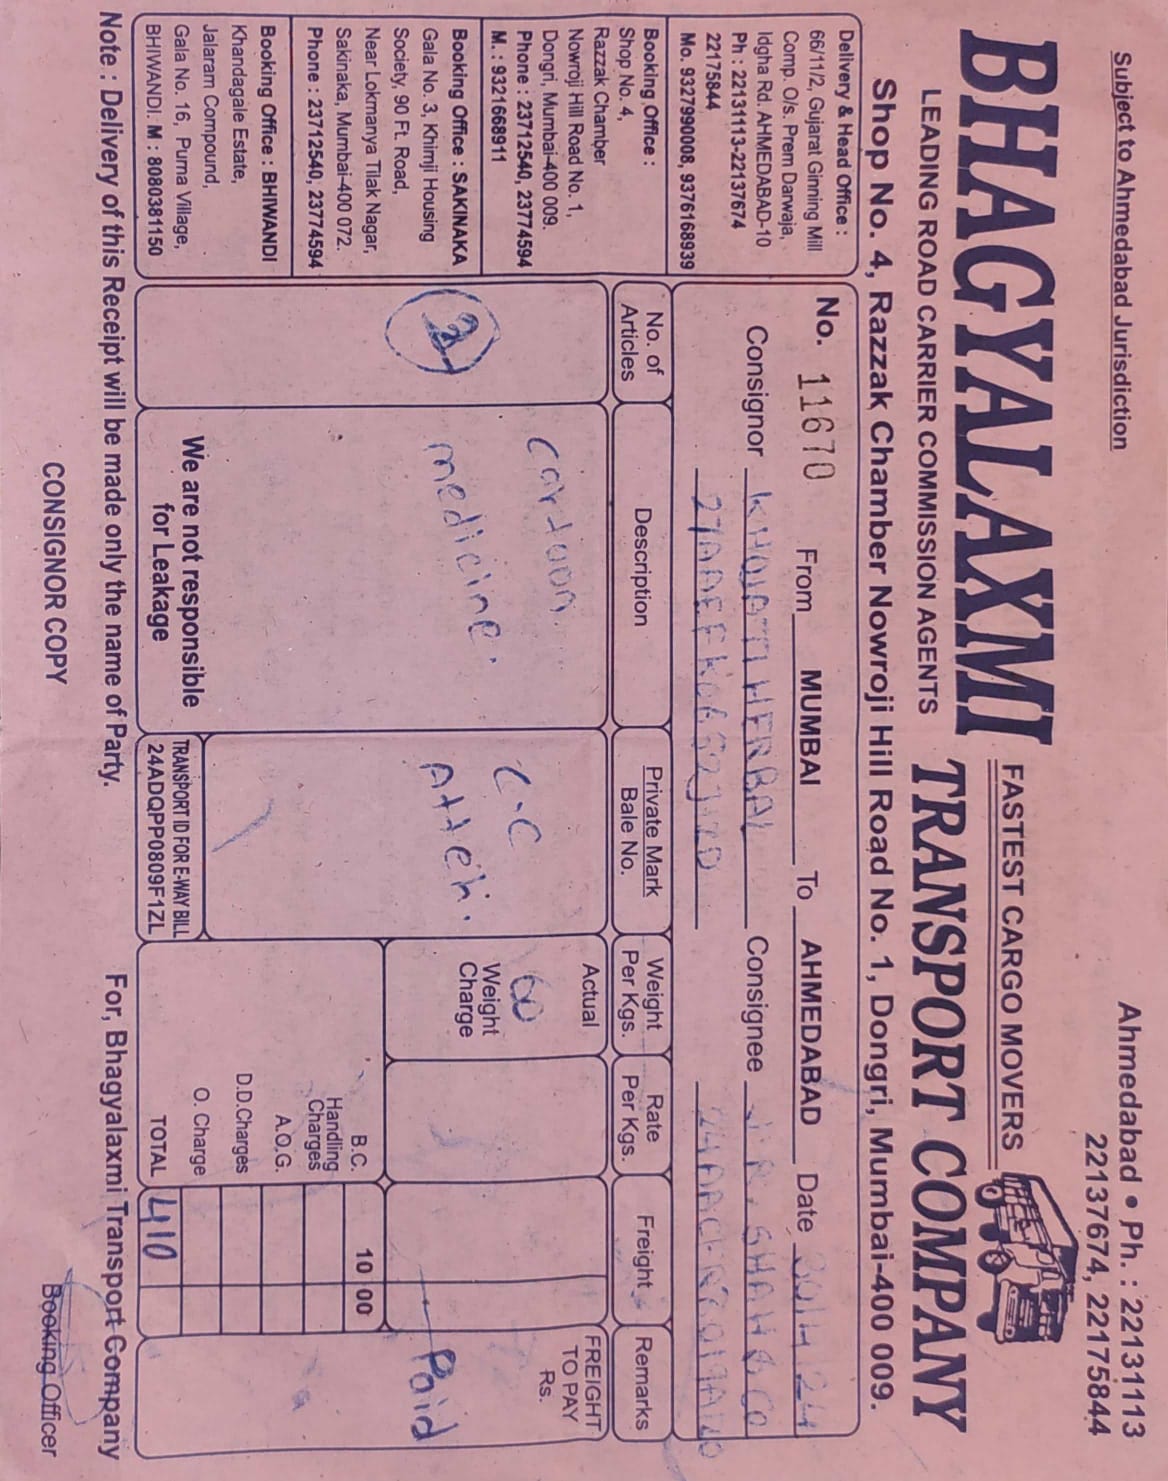 Subject to Ahmedabad Jurisdiction
Ahmedabad • Ph. : 22131113
22137674, 22175844
BHAGYALAXMI
FASTEST CARGO MOVERS
LEADING ROAD CARRIER COMMISSION AGENTS
TRANSPORT COMPANY
Shop No. 4, Razzak Chamber Nowroji Hill Road No. 1, Dongri, Mumbai-400 009.
Delivery & Head Office :
66/11/2, Gujarat Ginning Mill
Comp. O/s. Prem Darwaja,
Idgha Rd. AHMEDABAD-10
Ph : 22131113-22137674
22175844
Mo. 9327990008, 9376168939
Booking Office :
Shop No. 4,
Razzak Chamber
Nowroji Hill Road No. 1,
Dongri, Mumbai-400 009.
Phone : 23712540, 23774594
M. : 9321668911
Booking Office : SAKINAKA
Gala No. 3, Khimji Housing
Society, 90 Ft. Road,
Near Lokmanya Tilak Nagar,
Sakinaka, Mumbai-400 072.
Phone : 23712540, 23774594
Booking Office : BHIWANDI
Khandagale Estate,
Jalaram Compound,
Gala No. 16, Purna Village,
BHIWANDI. M : 8080381150
No. 11670 From MUMBAI To AHMEDABAD Date 30/4/24
Consignor KHOJATI HERBAL Consignee R. SHAH & CO
No. of Articles
Description
Private Mark
Bale No.
Weight Per Kgs.
Rate Per Kgs.
Freight
Remarks
2
Cartoon
medicine.
C.C
Attech.
Actual
60
Weight Charge
FREIGHT TO PAY Rs.
Paid
B.C. 10 00
Handling Charges
A.O.G.
D.D.Charges
O. Charge
TOTAL 410
We are not responsible
for Leakage
TRANSPORT ID FOR E-WAY BILL
24ADQPP0809F1ZL
Note : Delivery of this Receipt will be made only the name of Party.
For, Bhagyalaxmi Transport Company
CONSIGNOR COPY
Booking Officer